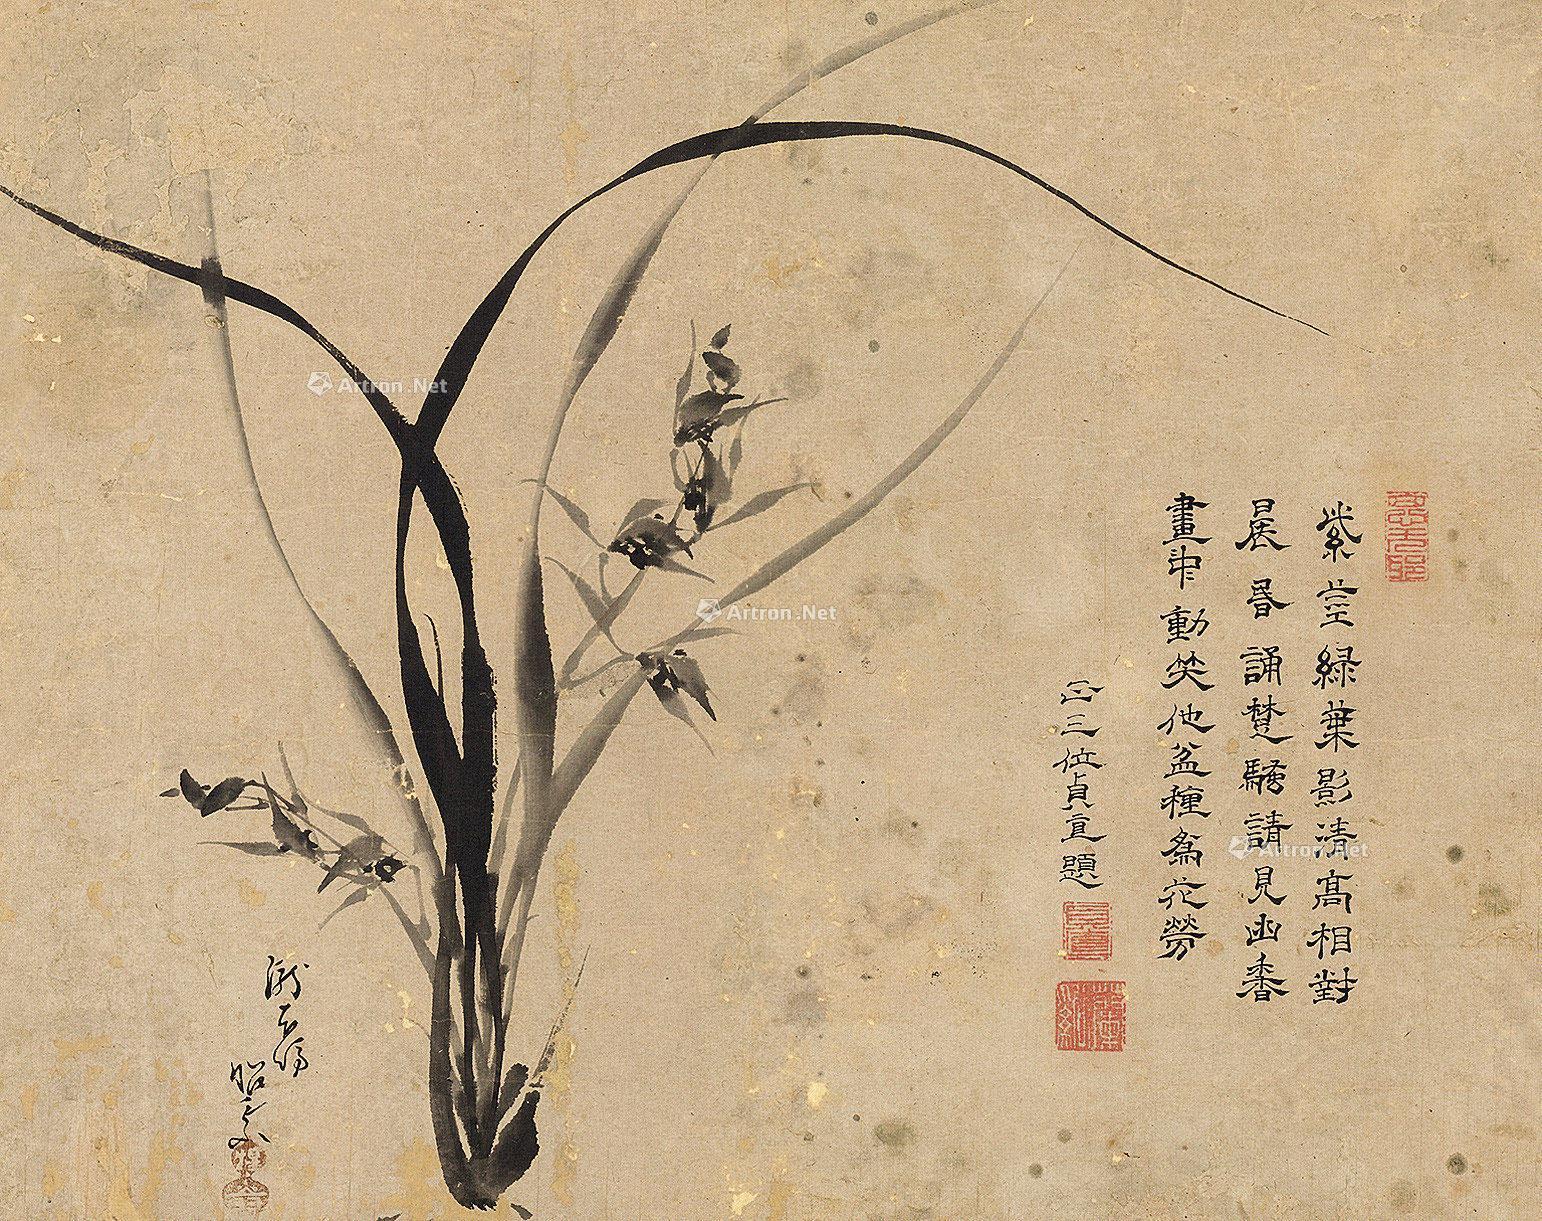 紫莖綠葉影清高相對
晨昏誦楚騷請見幽香
畫中動笑他盆種為花勞
正三位貞直題
Artron.Net
Artron.Net
Artron.Net